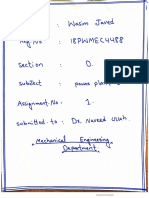 : Wasim Javed
Reg No : 18PWMEC4488
section : D.
subject : power plant
Assignment No : 1.
submitted to : Dr. Naveed Ullah.
Mechanical Engineering
Department